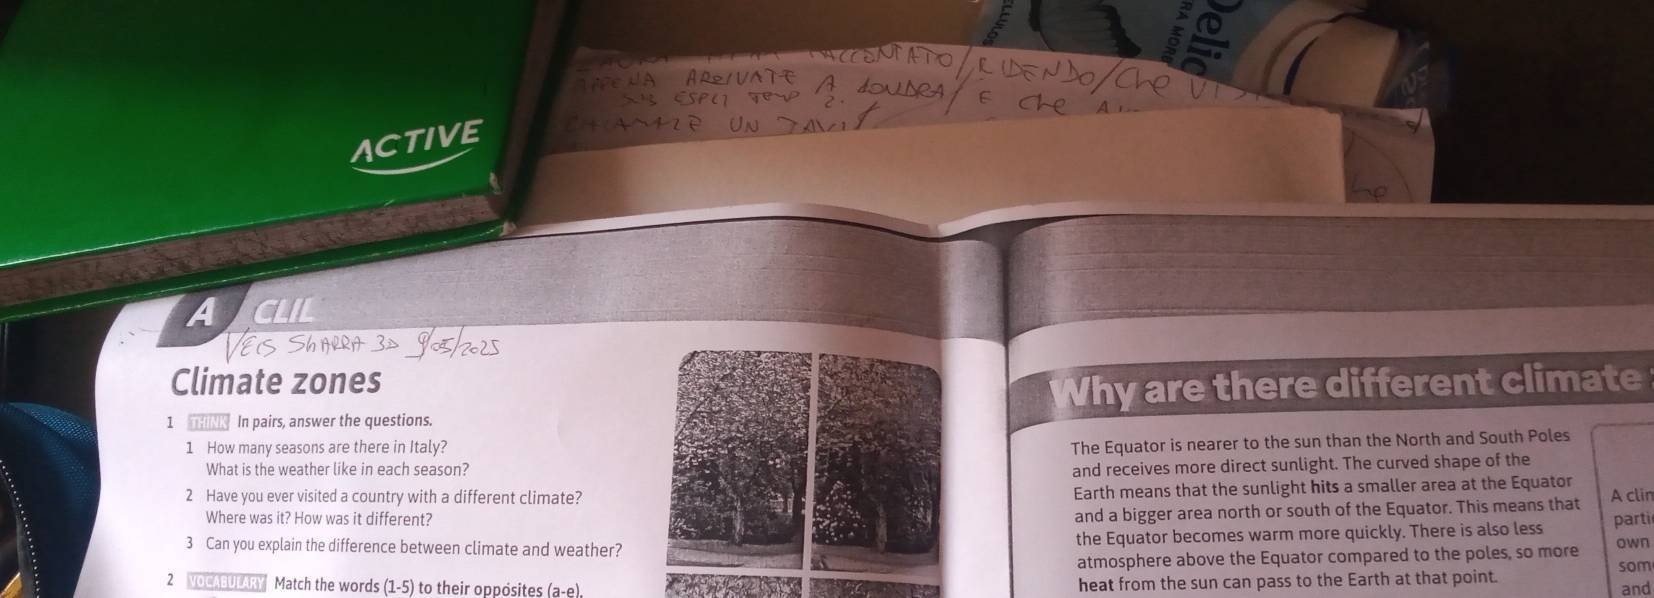 ACTIVE
RIDENDO/Che
ARRIVATE A LONDRA/ E Che
UN
he
Delic
A CLIL
VEIS ShARRA 3D 9/05/2025
Climate zones
1 THINK In pairs, answer the questions.
1 How many seasons are there in Italy?
What is the weather like in each season?
2 Have you ever visited a country with a different climate?
Where was it? How was it different?
3 Can you explain the difference between climate and weather?
2 VOCABULARY Match the words (1-5) to their opposites (a-e).
Why are there different climate
The Equator is nearer to the sun than the North and South Poles
and receives more direct sunlight. The curved shape of the
Earth means that the sunlight hits a smaller area at the Equator
and a bigger area north or south of the Equator. This means that
the Equator becomes warm more quickly. There is also less
atmosphere above the Equator compared to the poles, so more
heat from the sun can pass to the Earth at that point.
A clim
parti
own
som
and